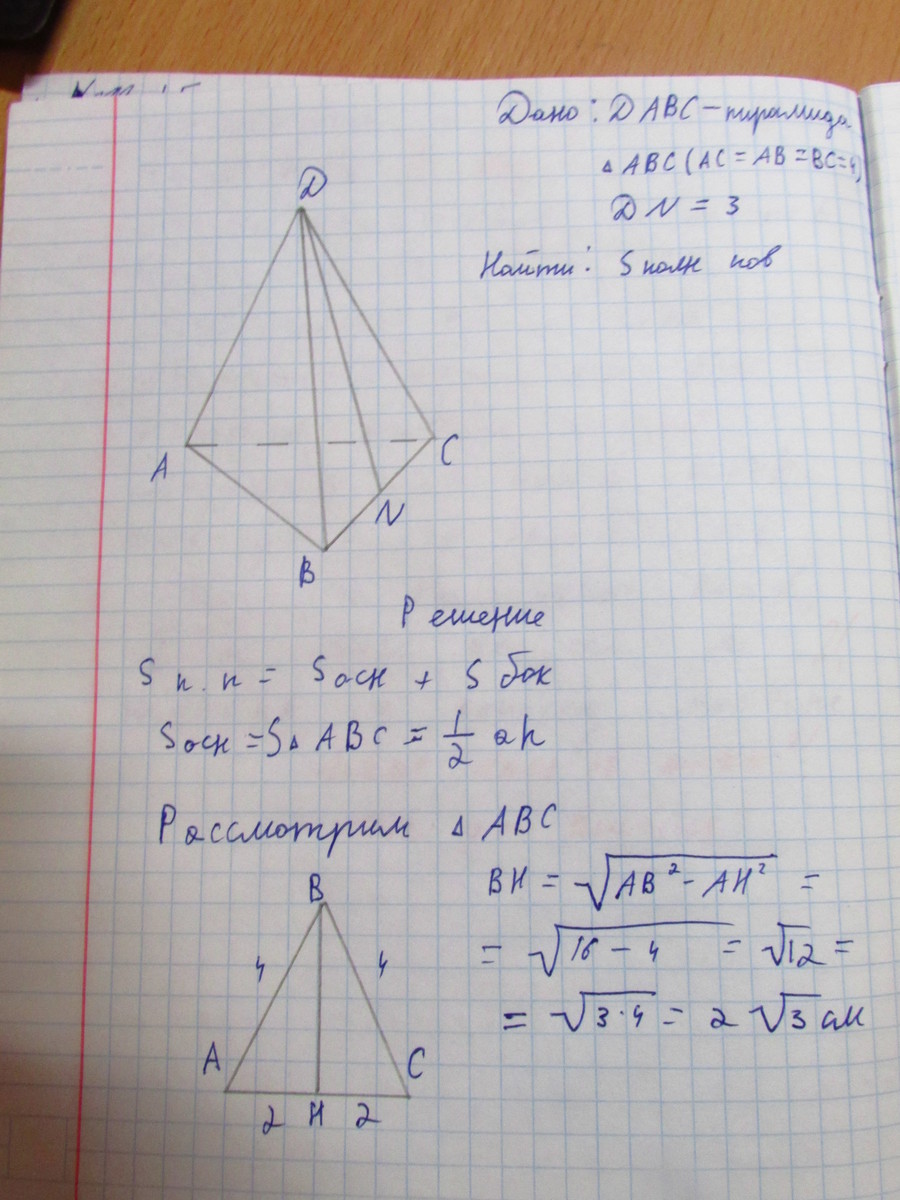 Дано: DABC – пирамида
△ ABC (AC = AB = BC = 4)
DN = 3
Найти: S полн пов
D
A
C
N
B
Решение
S п. п = S осн + S бок
S осн = S△ ABC = 1/2 ah
Рассмотрим △ ABC
BH = √(AB² - AH²) =
= √(16 - 4) = √12 =
= √(3·4) = 2 √3 см
B
4 4
A C
2 H 2